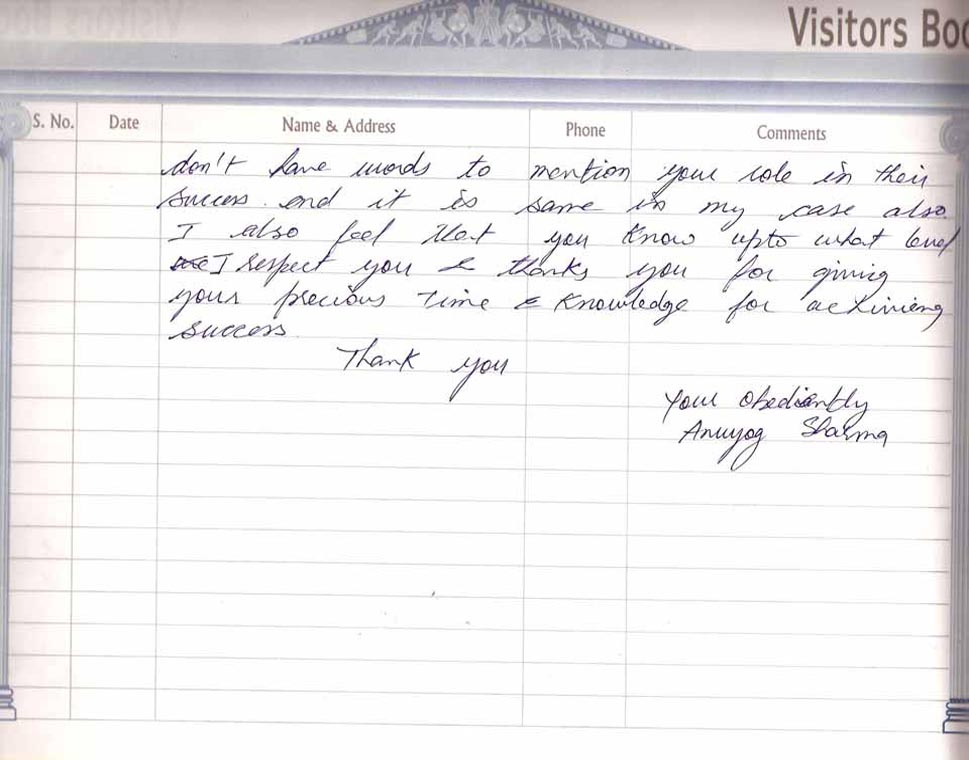 Visitors Boo
S. No. Date Name & Address Phone Comments
don't have words to mention your role in their
success. and it is same in my case also.
I also feel that you know upto what level
I respect you & thanks you for giving
your precious time & knowledge for achieving
success.
Thank you
Your obediantly
Anuyog Sharma